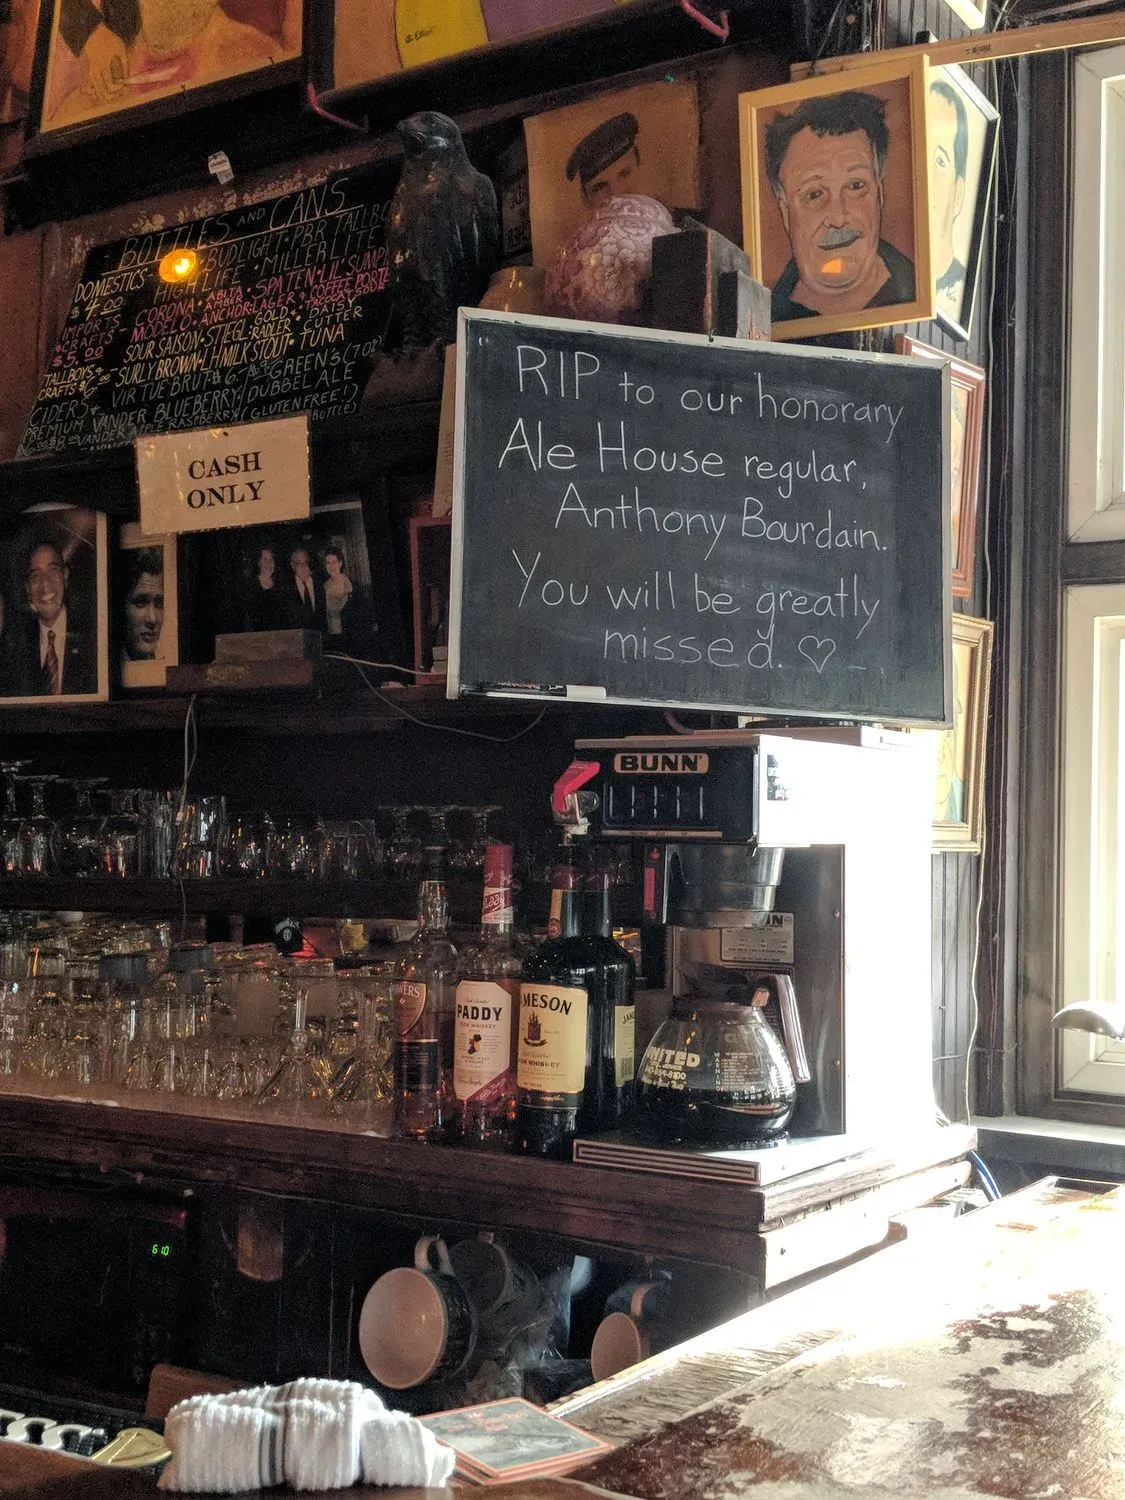 BOTTLES AND CANS
DOMESTICS • BUDLIGHT • PBR TALLBOY
$4.00 HIGH LIFE • MILLER LITE
IMPORTS CORONA • SPATEN • LIL' SUMPIN
CRAFTS MODELO • ANCHOR LAGER • COFFEE PORTER
$5.00 SOUR SAISON • STIEGL RADLER • DAISY CUTTER
TALLBOYS & SURLY BROWN • LH MILK STOUT • TUNA
CRAFTS $6
CIDERS + VIRTUE BRUT GREEN'S
PREMIUM VANDER BLUEBERRY DUBBEL ALE
RASPBERRY (GLUTEN FREE!)
CASH
ONLY
RIP to our honorary
Ale House regular,
Anthony Bourdain.
You will be greatly
missed. ♡
BUNN
PADDY
IRISH WHISKEY
MESON
UNITED
610